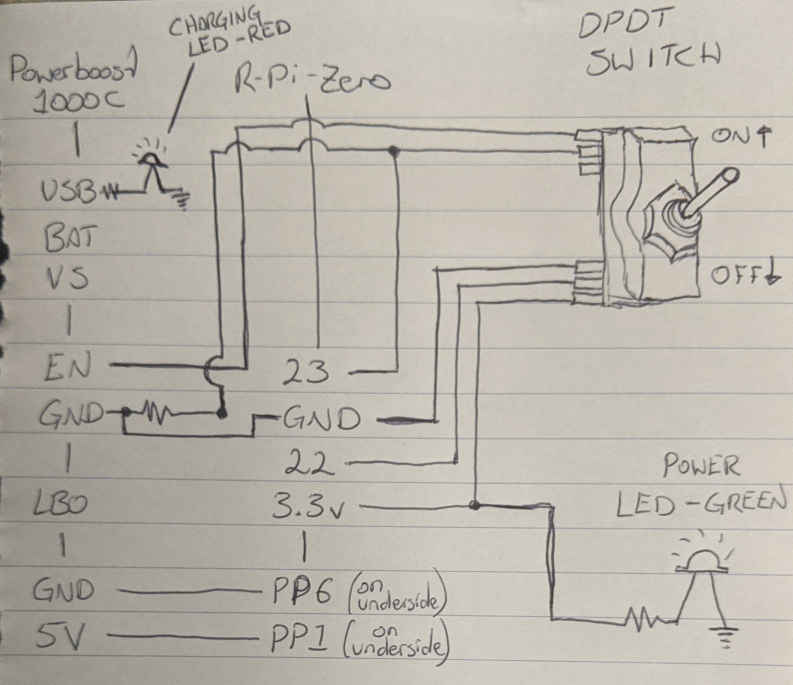 CHARGING
LED-RED
DPDT
SWITCH
Powerboost
1000C
R-Pi-Zero
ON↑
USB
BAT
VS
OFF↓
EN
23
GND
GND
22
POWER
LED-GREEN
LBO
3.3v
GND
PP6 (on underside)
5V
PP1 (on underside)